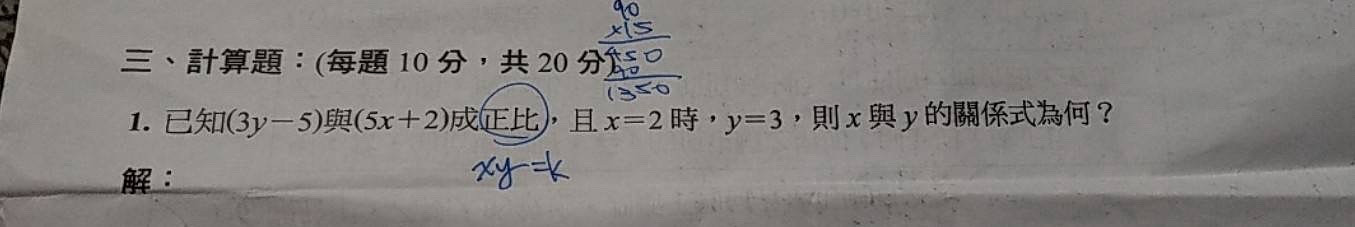 90
×15
450
90
1350
三、計算題：(每題 10 分，共 20 分)
1. 已知(3y－5)與(5x＋2)成正比，且 x＝2 時，y＝3，則 x 與 y 的關係式為何？
xy=k
解：